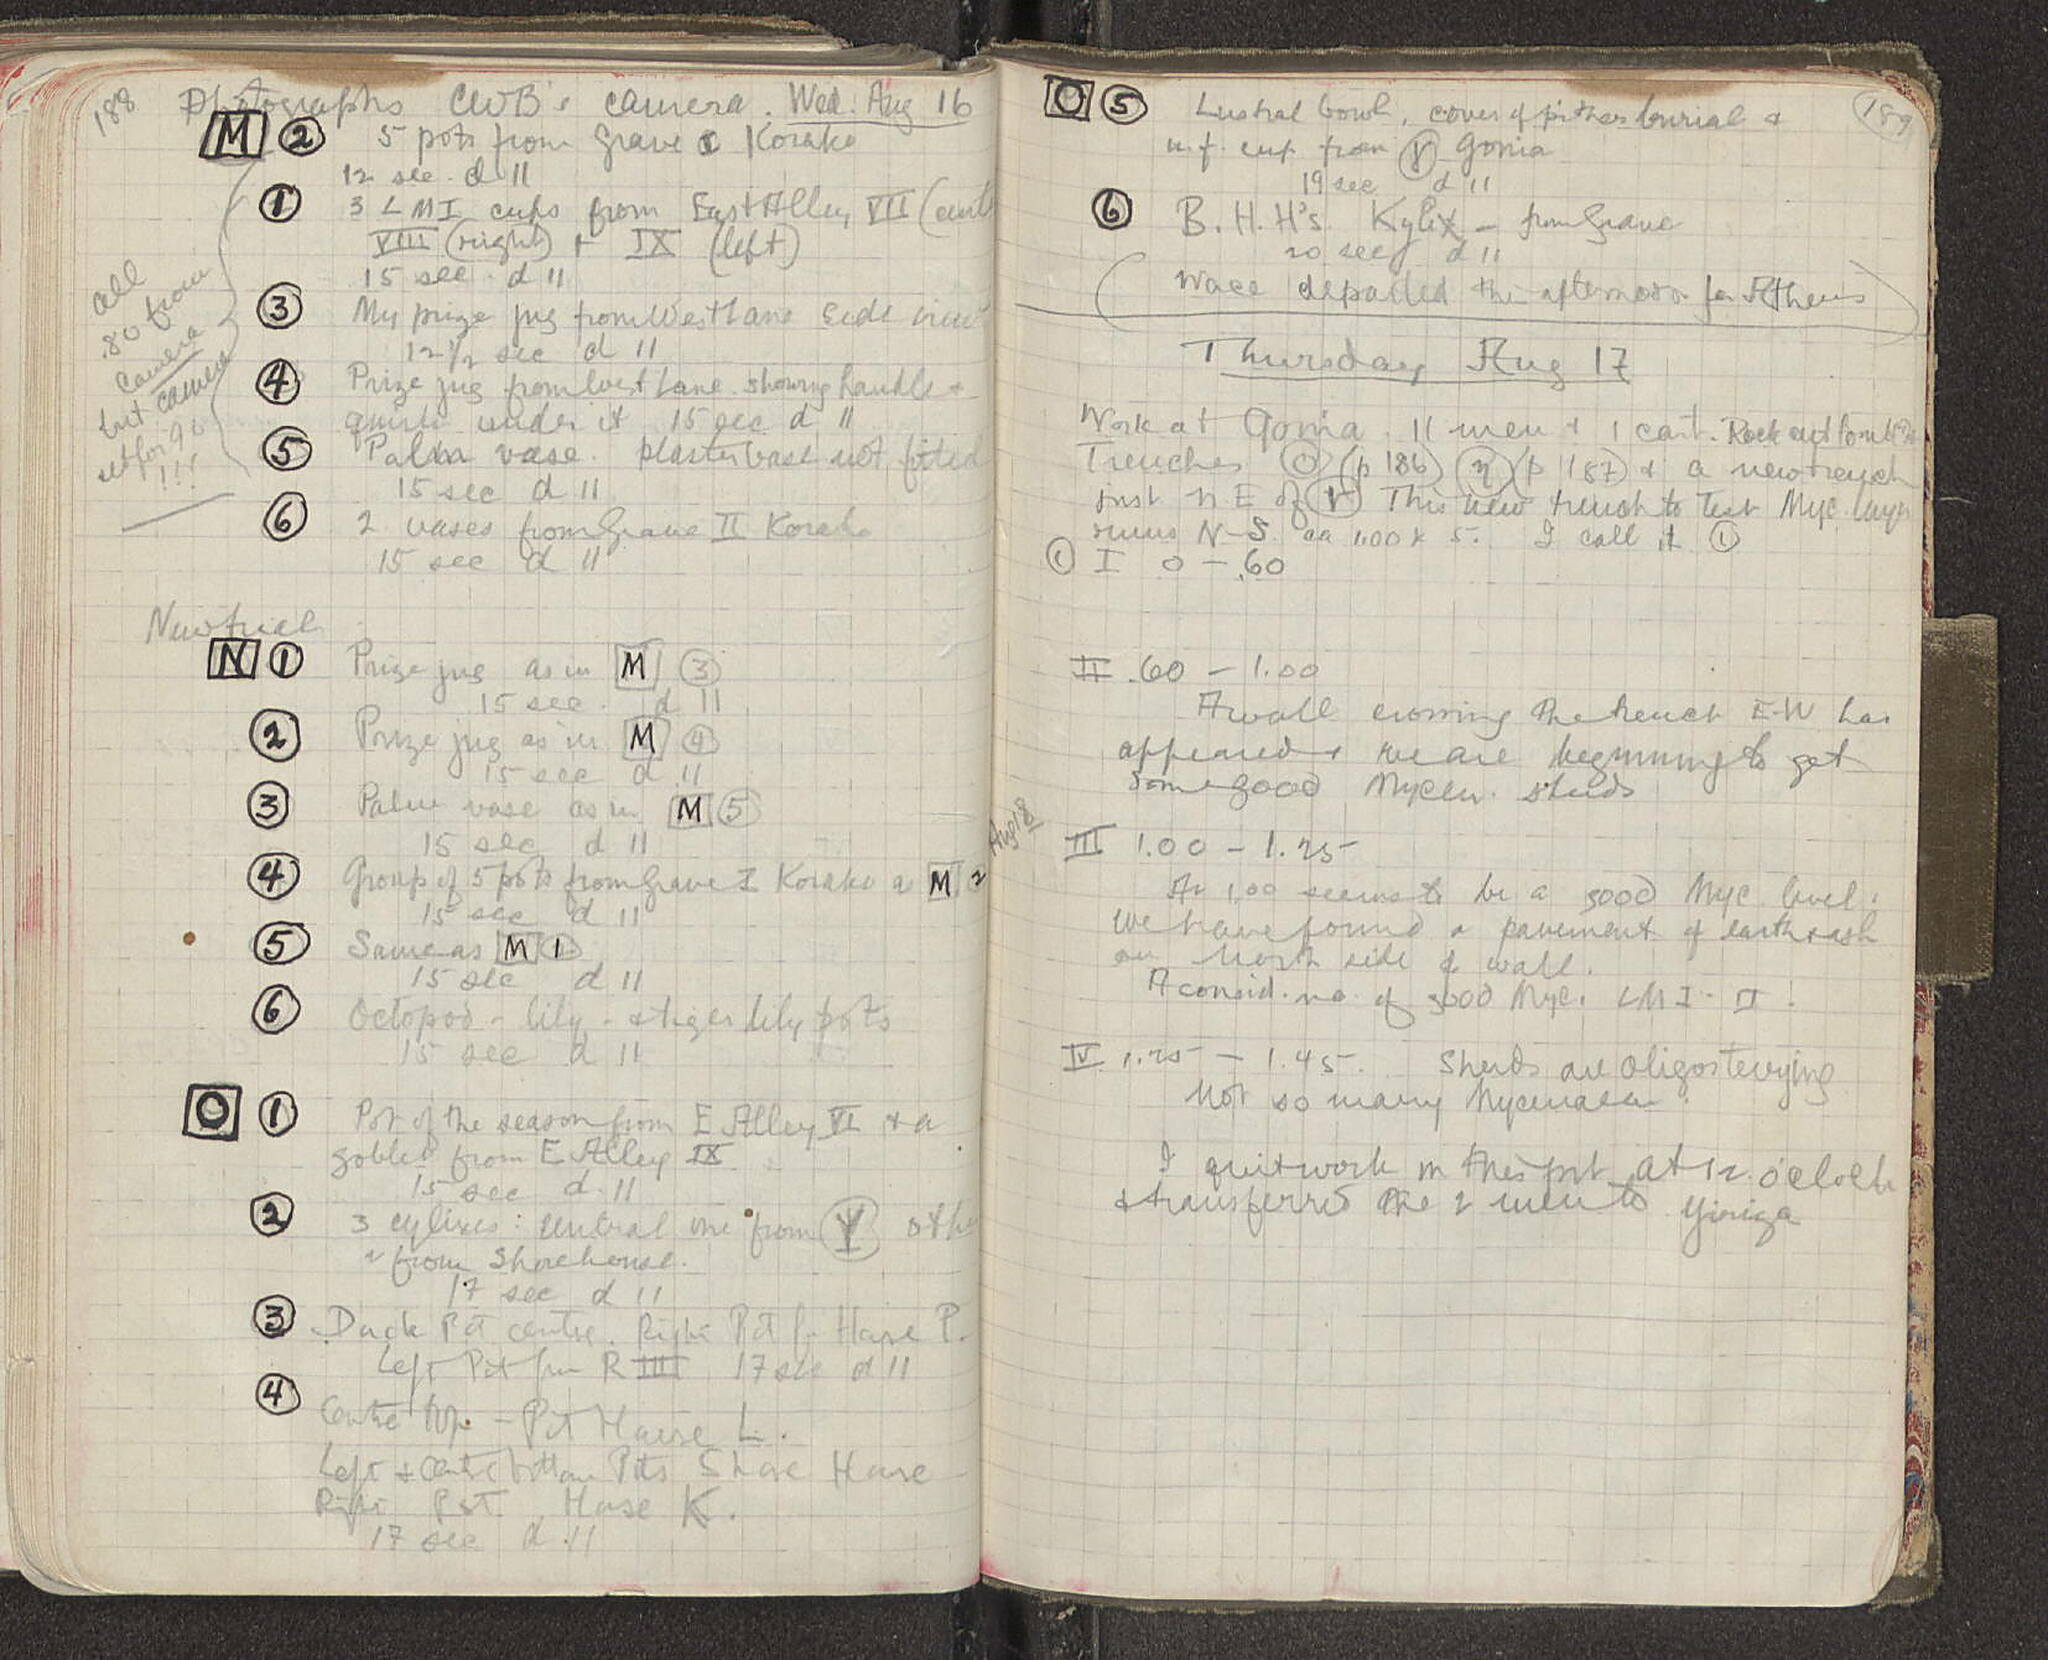 188
Photographs CWB's camera. Wed. Aug 16
M 2 5 pots from grave Korako
12 sec. d 11
1 3 LMI cups from East Alley VII
VIII (right) + IX (left)
15 sec. d 11
3 My prize jug from West Lane side view
12 1/2 sec d 11
4 Prize jug from West Lane showing handle +
under it 15 sec d 11
5 Palm vase. plaster base not fitted
15 sec d 11
6 2 vases from Grave II Korako
15 sec d 11
all
.80 from
camera
but camera
set for 90
!!!
New trial
N 1 Prize jug as in M 3
15 sec. d 11
2 Prize jug as in M 4
15 sec d 11
3 Palm vase as in M 5
15 sec d 11
4 Group of 5 pots from Grave I Korako as M 2
15 sec d 11
5 Same as M 1
15 sec d 11
6 Octopod - lily - & tiger lily pots
15 sec d 11
O 1 Pot of the season from E Alley VI + a
goblet from E Alley IX
15 sec d. 11
2 3 cylixes: central one from Y other
2 from Shorehouse.
17 sec d 11
3 Duck Pot centre. Right Pot fr House P.
Left Pot from R III 17 sec d 11
4 Centre top - Pot House L.
Left + centre bottom Pots Shore House
Right Pot House K.
17 sec d. 11
189
O 5 Lustral bowl, cover of pithos burial &
cup from Gonia
19 sec d 11
6 B. H. H's. Kylix - from Grave
20 sec d 11
(Wace departed this afternoon for Athens)
Thursday Aug 17
Work at Gonia. 11 men + 1 cart.
Trenches (p 186) η (p 187) + a new trench
just NE of This new trench to test Myc. layer
runs N-S. ca 1.00 x 5. I call it ι
ι I 0 - .60
II .60 - 1.00
A wall crossing the trench E-W has
appeared & we are beginning to get
some good Mycen. sherds
Aug 18
III 1.00 - 1.25
At 1.00 seems to be a good Myc level.
We have found a pavement of earth & ash
on North side of wall.
A consid. no. of good Myc. LM I - II !
IV 1.25 - 1.45. Sherds are oligosteving
Not so many Mycenaean.
I quit work in this pit at 12 o'clock
& transferred the 2 men to Yiriza